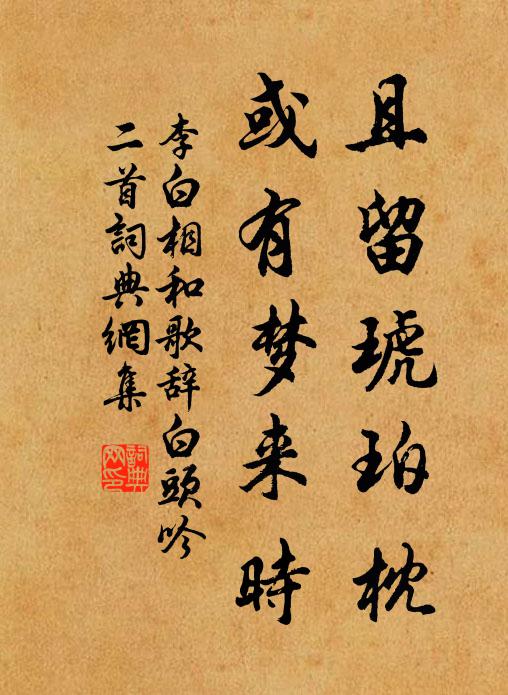 且留琥珀枕
或有梦来時
李白相和歌辞白頭吟
二首詞典網集
詞典網印